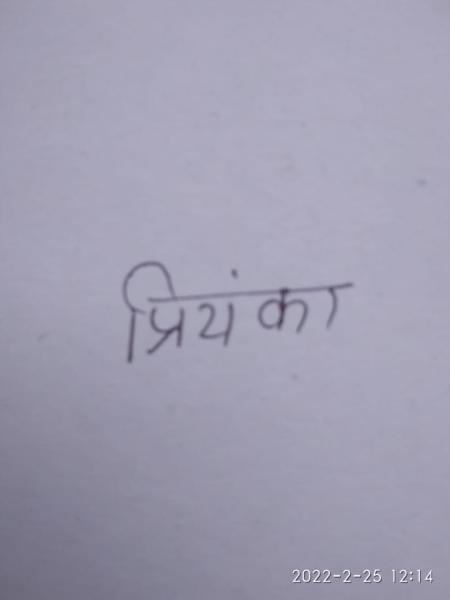 प्रियंका
2022-2-25 12:14